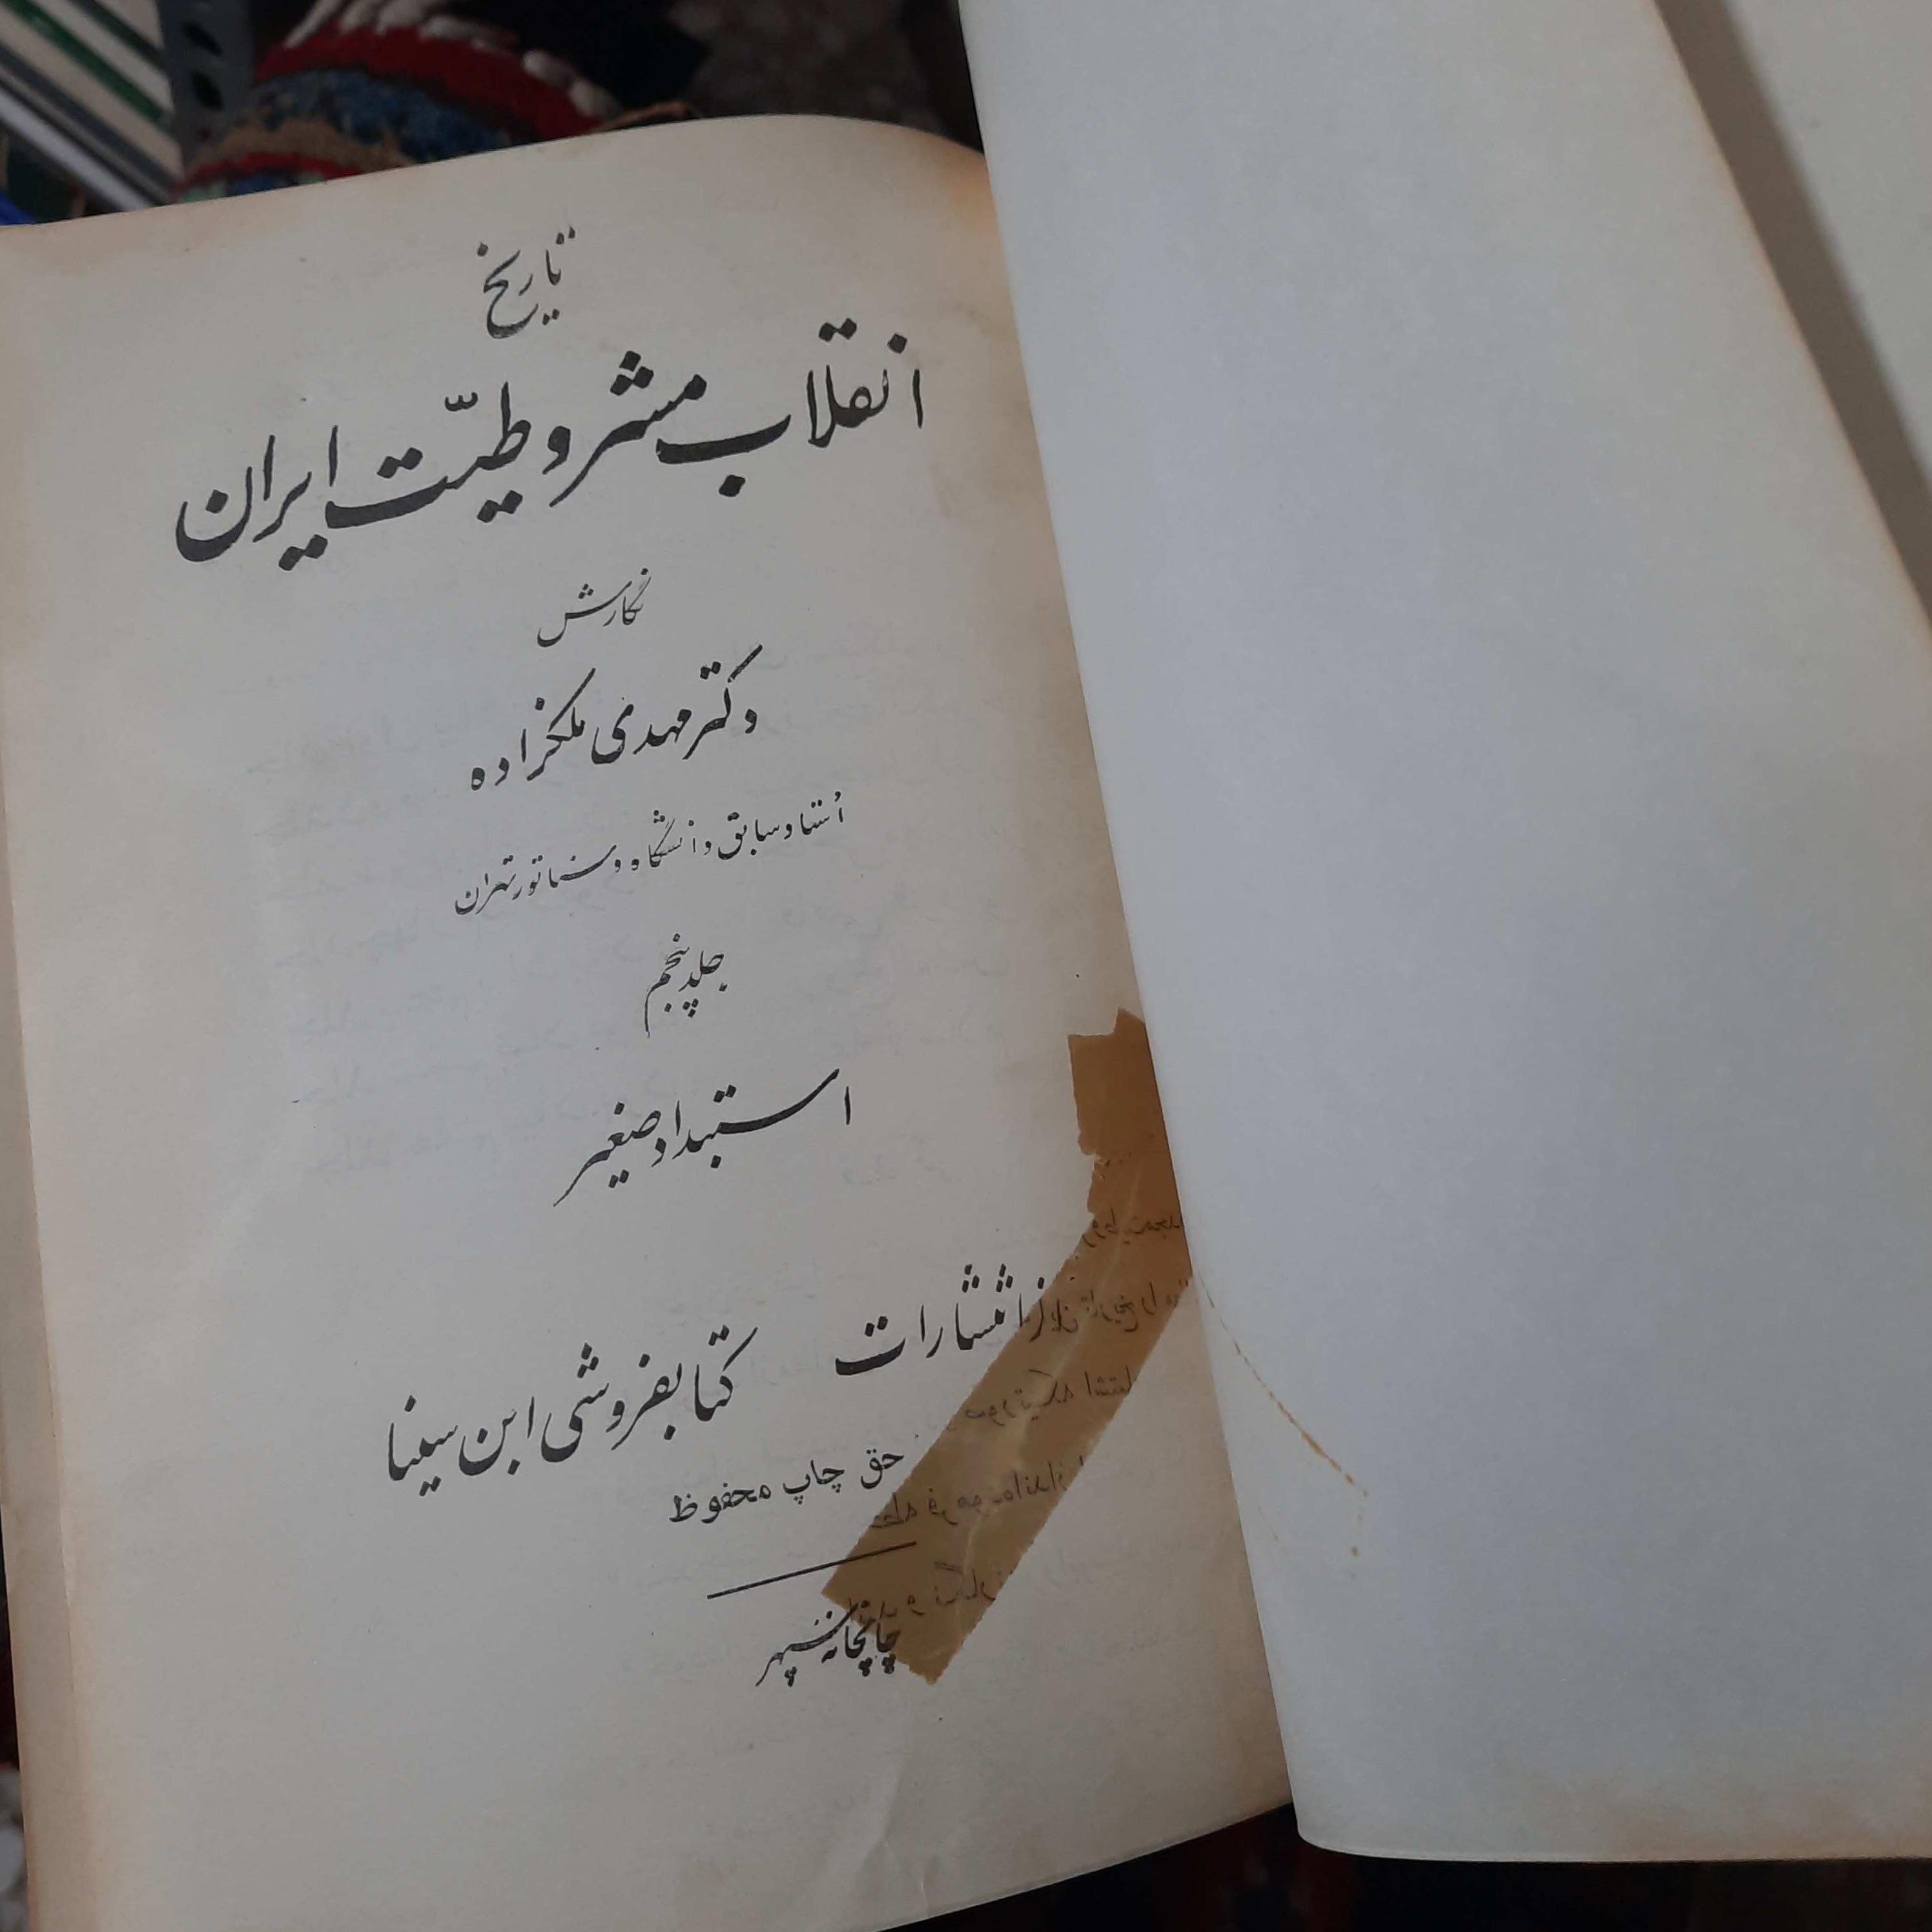 تاریخ
انقلاب مشروطیّت ایران
نگارش
دکتر مهدی ملکزاده
اُستاد سابق دانشگاه و سناتور تهران
جلد پنجم
استبداد صغیر
از انتشارات
کتابفروشی ابن سینا
حق چاپ محفوظ
چاپخانه سپهر